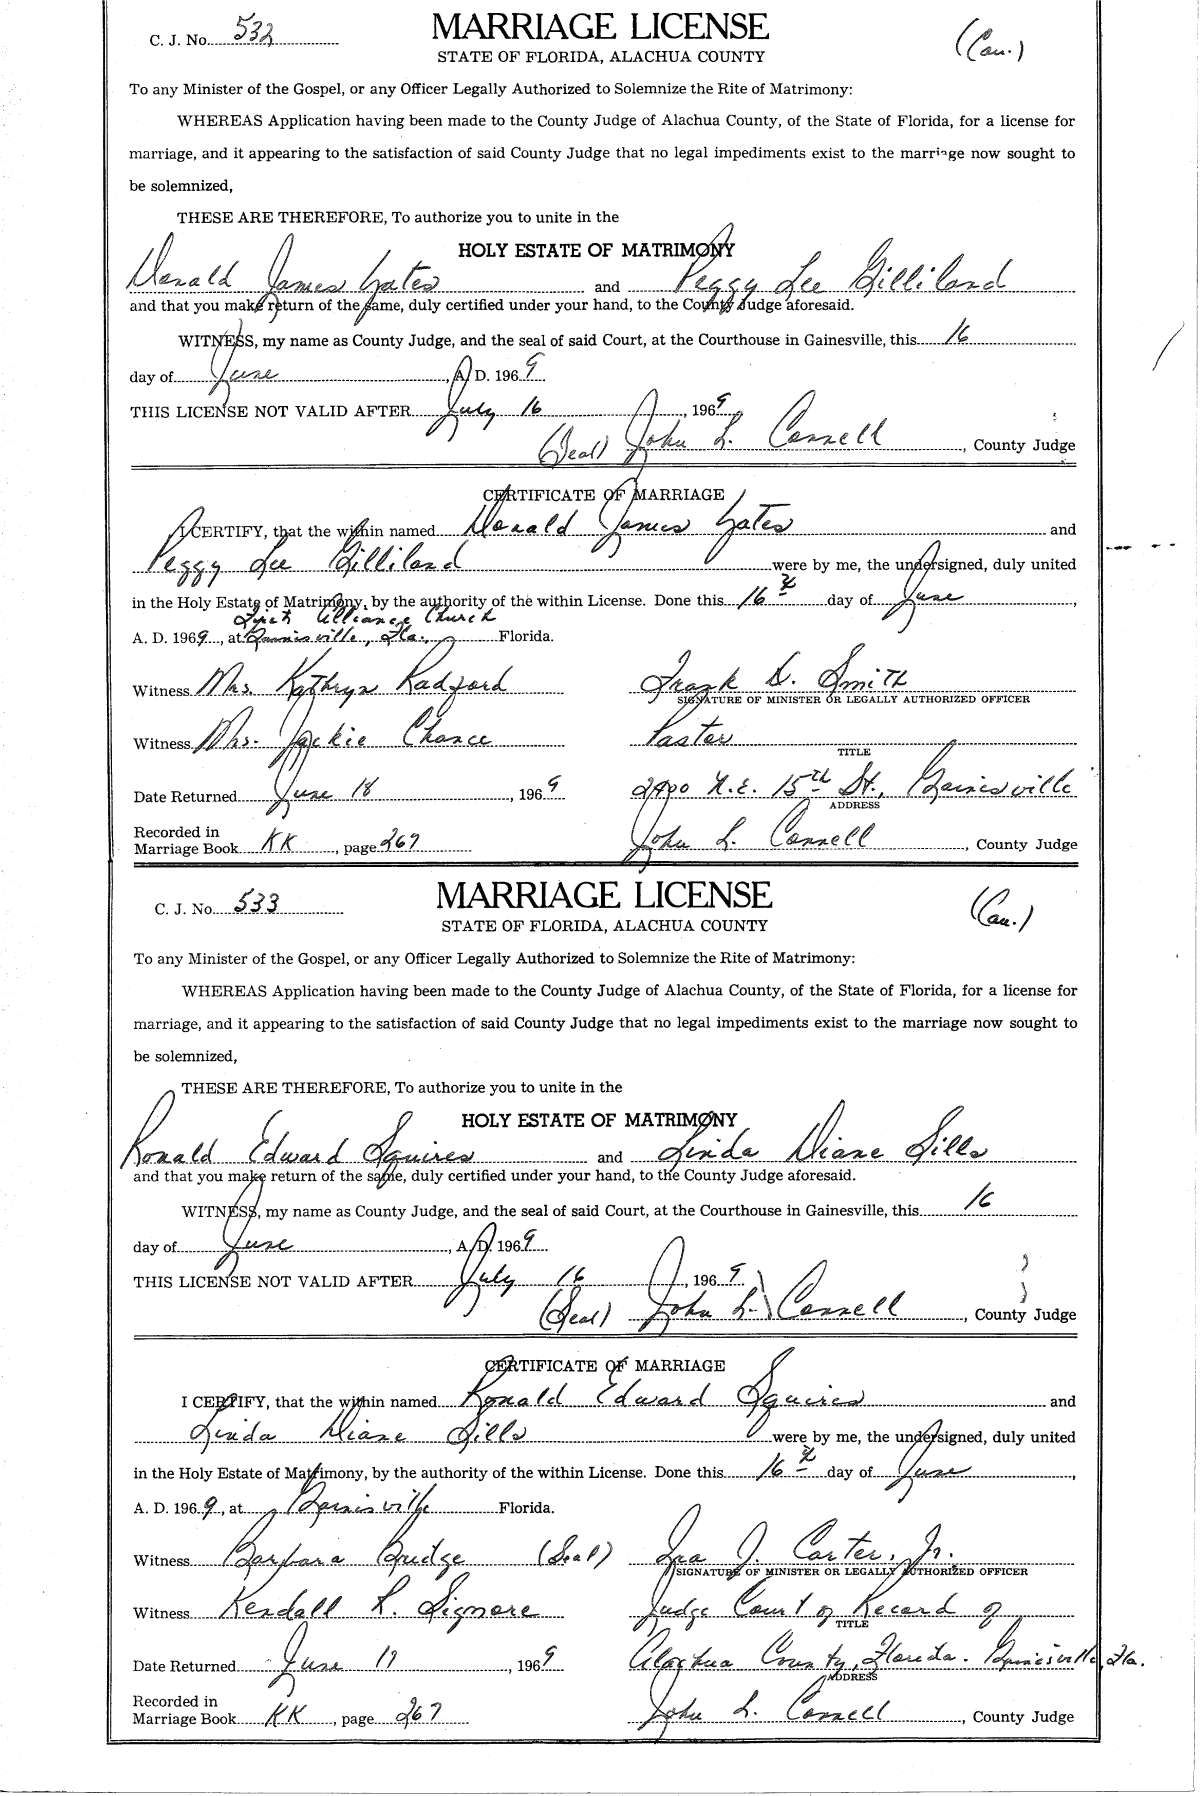 C. J. No. 532
MARRIAGE LICENSE
(Cau.)
STATE OF FLORIDA, ALACHUA COUNTY
To any Minister of the Gospel, or any Officer Legally Authorized to Solemnize the Rite of Matrimony:
WHEREAS Application having been made to the County Judge of Alachua County, of the State of Florida, for a license for
marriage, and it appearing to the satisfaction of said County Judge that no legal impediments exist to the marriage now sought to
be solemnized,
THESE ARE THEREFORE, To authorize you to unite in the
HOLY ESTATE OF MATRIMONY
Donald James Yates and Peggy Lee Gilliland
and that you make return of the same, duly certified under your hand, to the County Judge aforesaid.
WITNESS, my name as County Judge, and the seal of said Court, at the Courthouse in Gainesville, this 16
day of June, A. D. 1969
THIS LICENSE NOT VALID AFTER July 16, 1969
(Seal) John L. Connell, County Judge
CERTIFICATE OF MARRIAGE
I CERTIFY, that the within named Donald James Yates and
Peggy Lee Gilliland were by me, the undersigned, duly united
in the Holy Estate of Matrimony, by the authority of the within License. Done this 16th day of June,
Alliance Church
A. D. 1969, at Gainesville, Fla., Florida.
Witness Mrs. Kathryn Radford Frank D. Smith
SIGNATURE OF MINISTER OR LEGALLY AUTHORIZED OFFICER
Witness Mrs. Jackie Chance Pastor
TITLE
Date Returned June 18, 1969 2400 N.E. 15th St., Gainesville
ADDRESS
Recorded in
Marriage Book KK, page 267 John L. Connell, County Judge
C. J. No. 533
MARRIAGE LICENSE
(Cau.)
STATE OF FLORIDA, ALACHUA COUNTY
To any Minister of the Gospel, or any Officer Legally Authorized to Solemnize the Rite of Matrimony:
WHEREAS Application having been made to the County Judge of Alachua County, of the State of Florida, for a license for
marriage, and it appearing to the satisfaction of said County Judge that no legal impediments exist to the marriage now sought to
be solemnized,
THESE ARE THEREFORE, To authorize you to unite in the
HOLY ESTATE OF MATRIMONY
Ronald Edward Squires and Linda Diane Sills
and that you make return of the same, duly certified under your hand, to the County Judge aforesaid.
WITNESS, my name as County Judge, and the seal of said Court, at the Courthouse in Gainesville, this 16
day of June, A. D. 1969
THIS LICENSE NOT VALID AFTER July 16, 1969
(Seal) John L. Connell, County Judge
CERTIFICATE OF MARRIAGE
I CERTIFY, that the within named Ronald Edward Squires and
Linda Diane Sills were by me, the undersigned, duly united
in the Holy Estate of Matrimony, by the authority of the within License. Done this 16th day of June,
A. D. 1969, at Gainesville Florida.
Witness Barbara Budge (Seal) Ira J. Carter, Jr.
SIGNATURE OF MINISTER OR LEGALLY AUTHORIZED OFFICER
Witness Kendall R. Signore Judge Court of Record of
TITLE
Date Returned June 19, 1969 Alachua County, Florida. Gainesville, Fla.
ADDRESS
Recorded in
Marriage Book KK, page 267 John L. Connell, County Judge